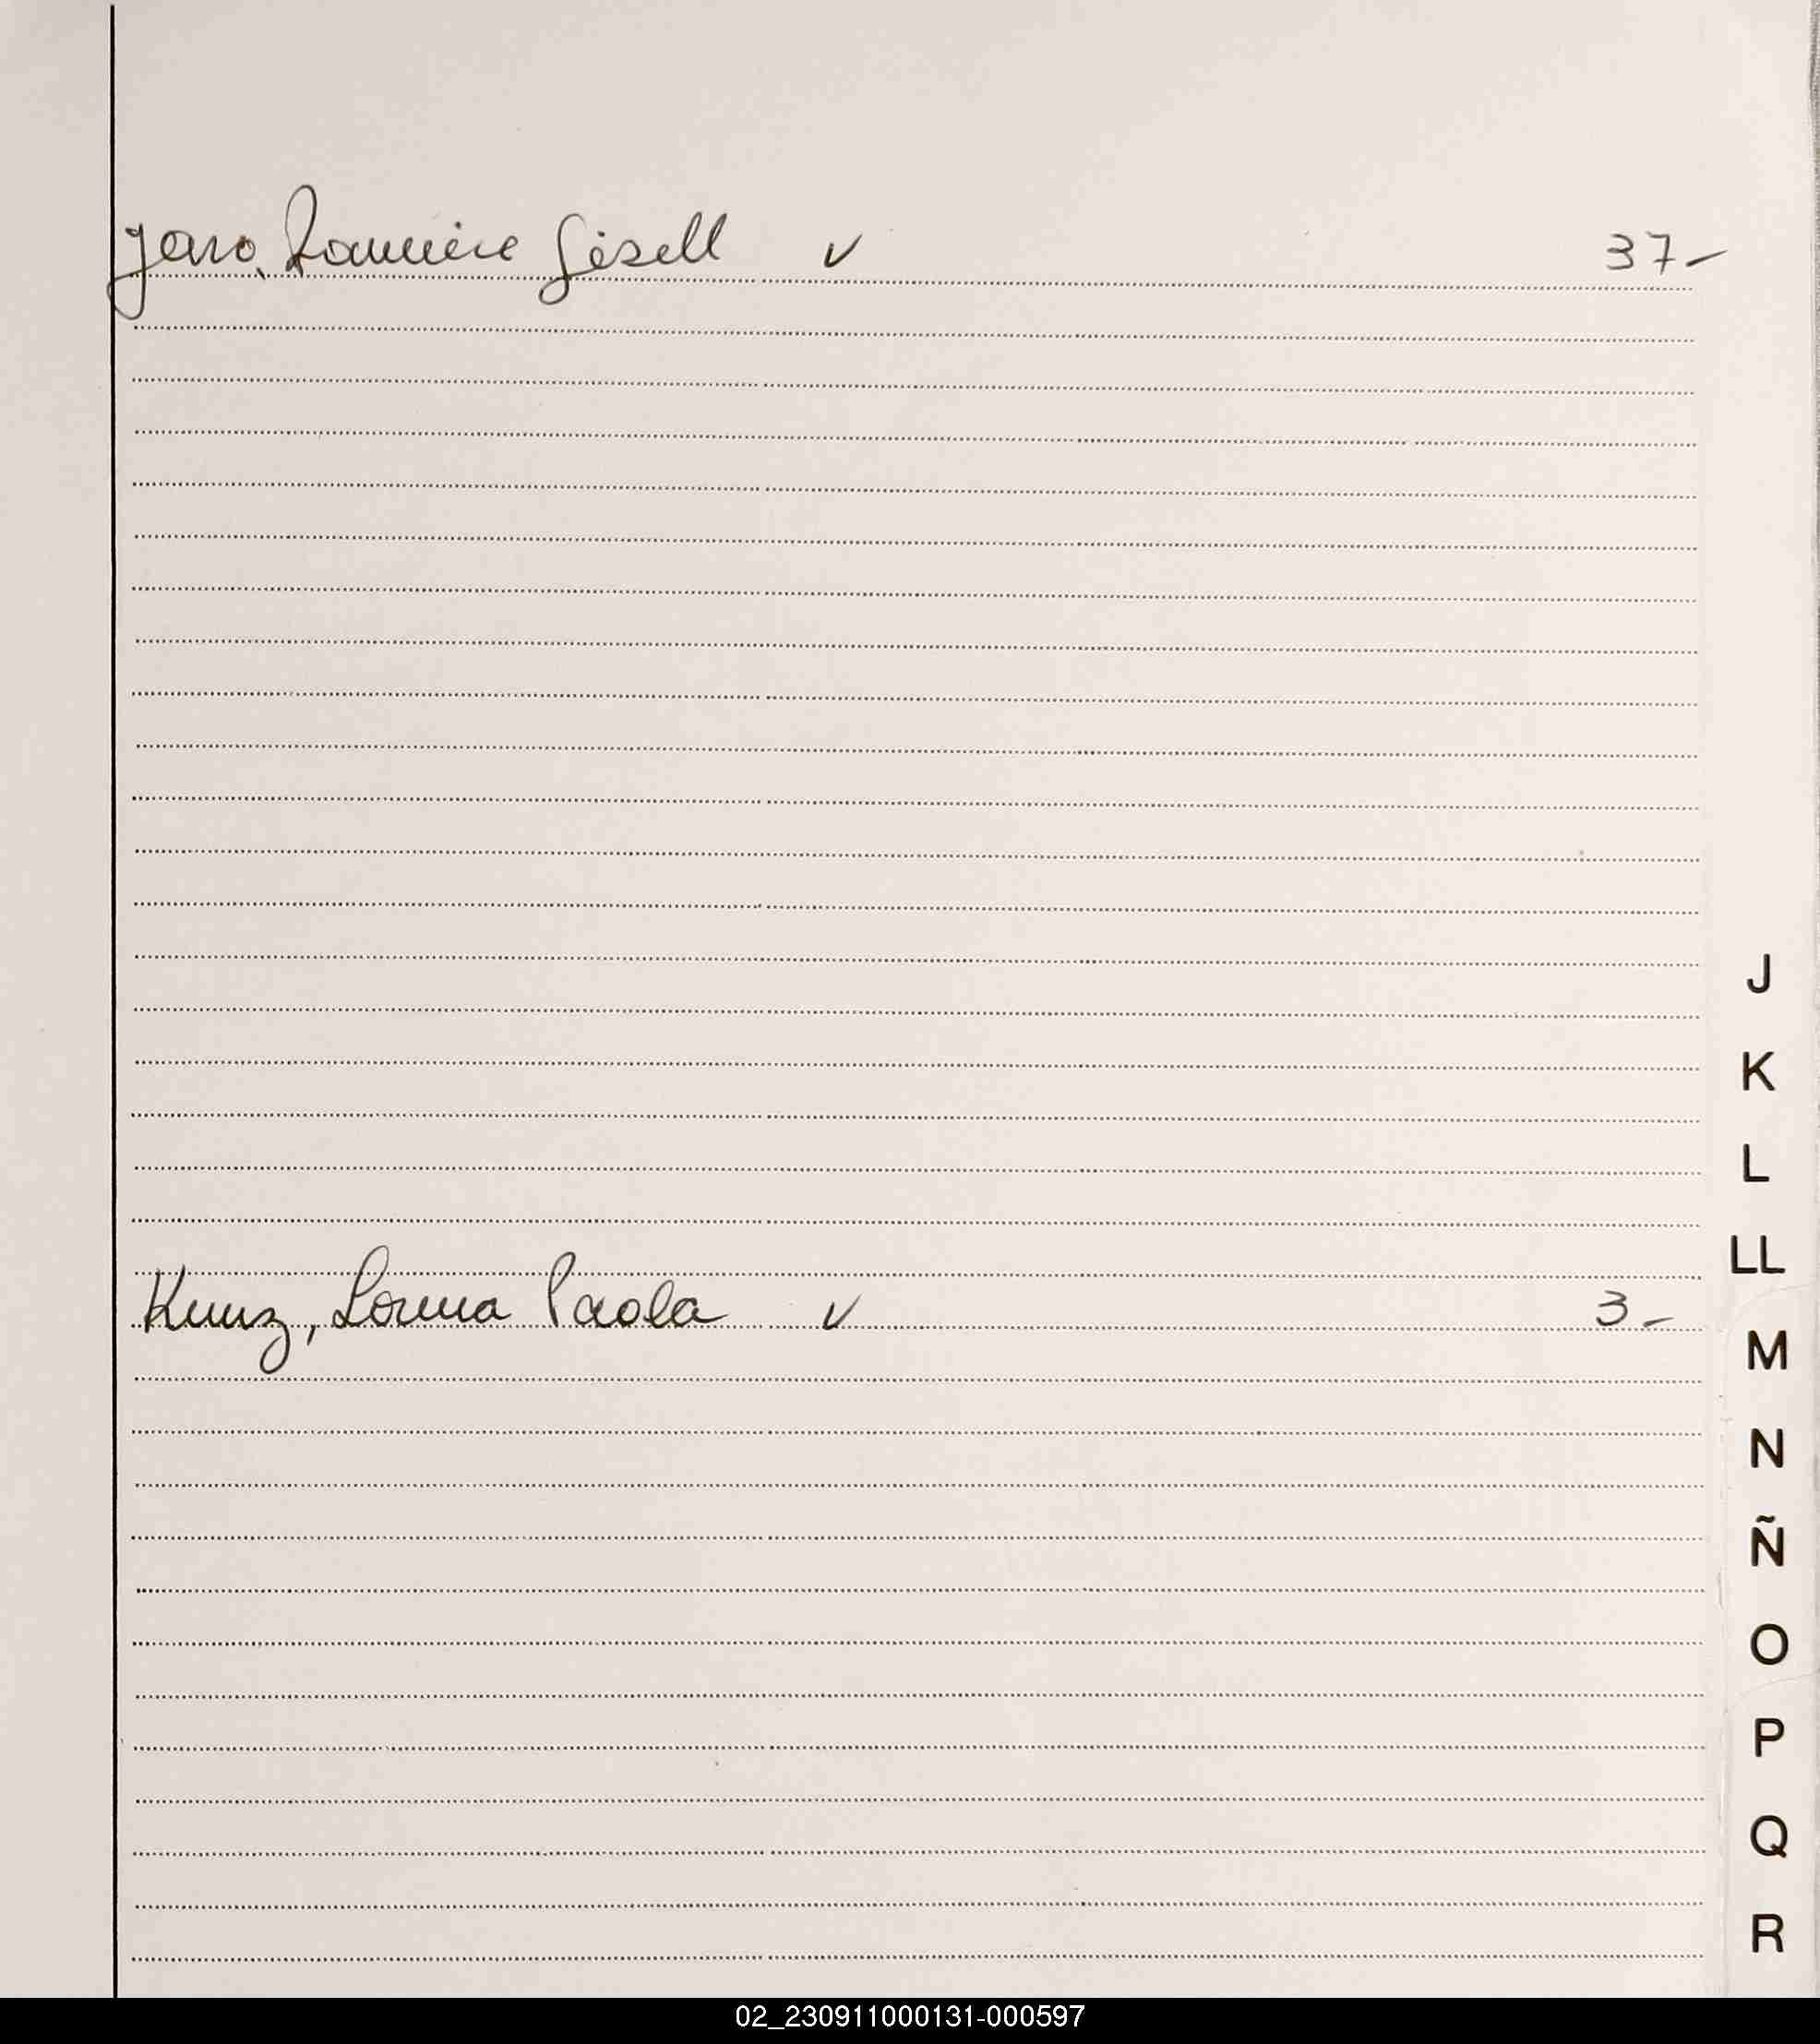 Jaro, Gisell v 37-
J
K
L
LL
Kunz, Lorena Paola v 3-
M
N
Ñ
O
P
Q
R
02_230911000131-000597